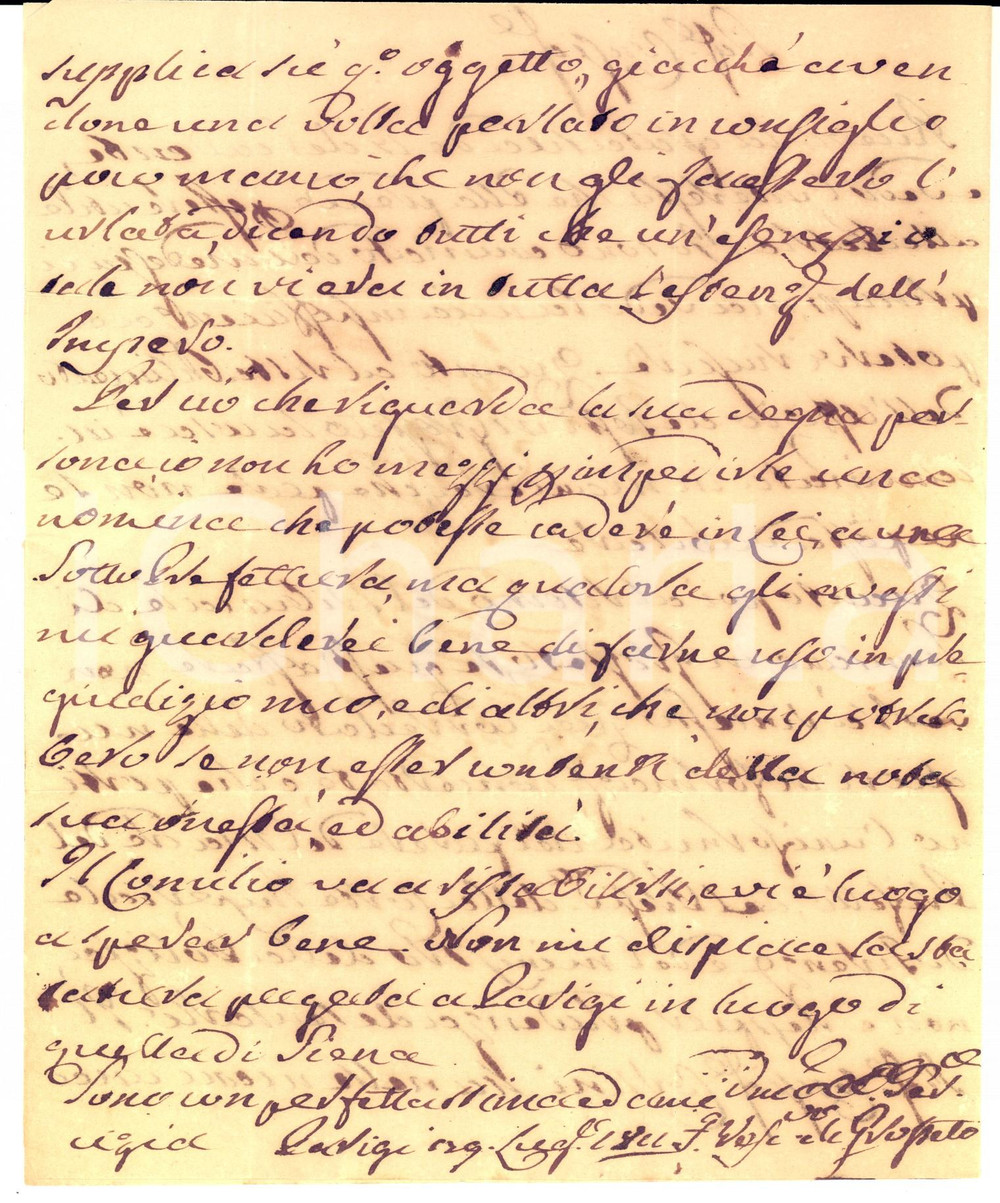 supplica su q.º oggetto, giacché aven
done una volta parlato in consiglio
poco mancò, che non gli facessero l'
urlata, dicendo tutti che un'esempio
tale non vi era in tutta l'estens.e dell'
Impero.
Per ciò che riguarda la sua degna per-
sona io non ho maggi p impedirle una
nomina che potesse cadere in lei a una
Sotto Prefettura, ma qualora gli avessi
mi guarderei bene di farne uso in pre
giudizio mio, e di altri, che non potreb
bero se non esser contenti della nota
sua onestà, ed abilità.
Il Concilio va a ristabilirsi, e vi è luogo
a sperar bene. Non mi dispiace la sta
tura pagata a Parigi in luogo di
quella di Siena
Sono con perfetta stima ed ami
cizia Parigi 29. Lug. 1811 F. Vesc.vo di Grosseto
Charta